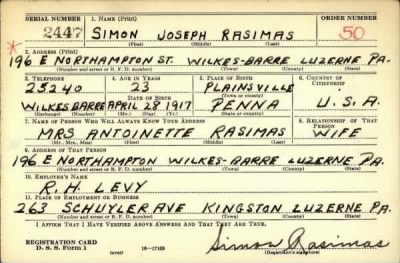 SERIAL NUMBER 1. NAME (Print) ORDER NUMBER
2447 SIMON JOSEPH RASIMAS 50
(First) (Middle) (Last)
2. ADDRESS (Print)
196 E NORTHAMPTON ST. WILKES-BARRE LUZERNE PA.
(Number and street or R. F. D. number) (Town) (County) (State)
3. TELEPHONE 4. AGE IN YEARS 5. PLACE OF BIRTH 6. COUNTRY OF CITIZENSHIP
25240 23 PLAINSVILLE
DATE OF BIRTH (Town or county)
WILKES BARRE APRIL 28, 1917 PENNA U.S.A.
(Exchange) (Number) (Mo.) (Day) (Yr.) (State or country)
7. NAME OF PERSON WHO WILL ALWAYS KNOW YOUR ADDRESS 8. RELATIONSHIP OF THAT PERSON
MRS ANTOINETTE RASIMAS WIFE
(Mr., Mrs., Miss) (First) (Middle) (Last)
9. ADDRESS OF THAT PERSON
196 E NORTHAMPTON WILKES-BARRE LUZERNE PA.
(Number and street or R. F. D. number) (Town) (County) (State)
10. EMPLOYER'S NAME
R. H. LEVY
11. PLACE OF EMPLOYMENT OR BUSINESS
263 SCHUYLER AVE KINGSTON LUZERNE PA.
(Number and street or R. F. D. number) (Town) (County) (State)
I AFFIRM THAT I HAVE VERIFIED ABOVE ANSWERS AND THAT THEY ARE TRUE.
REGISTRATION CARD
D. S. S. Form 1 (over) 16-17105 Simon Rasimas
(Registrant's signature)